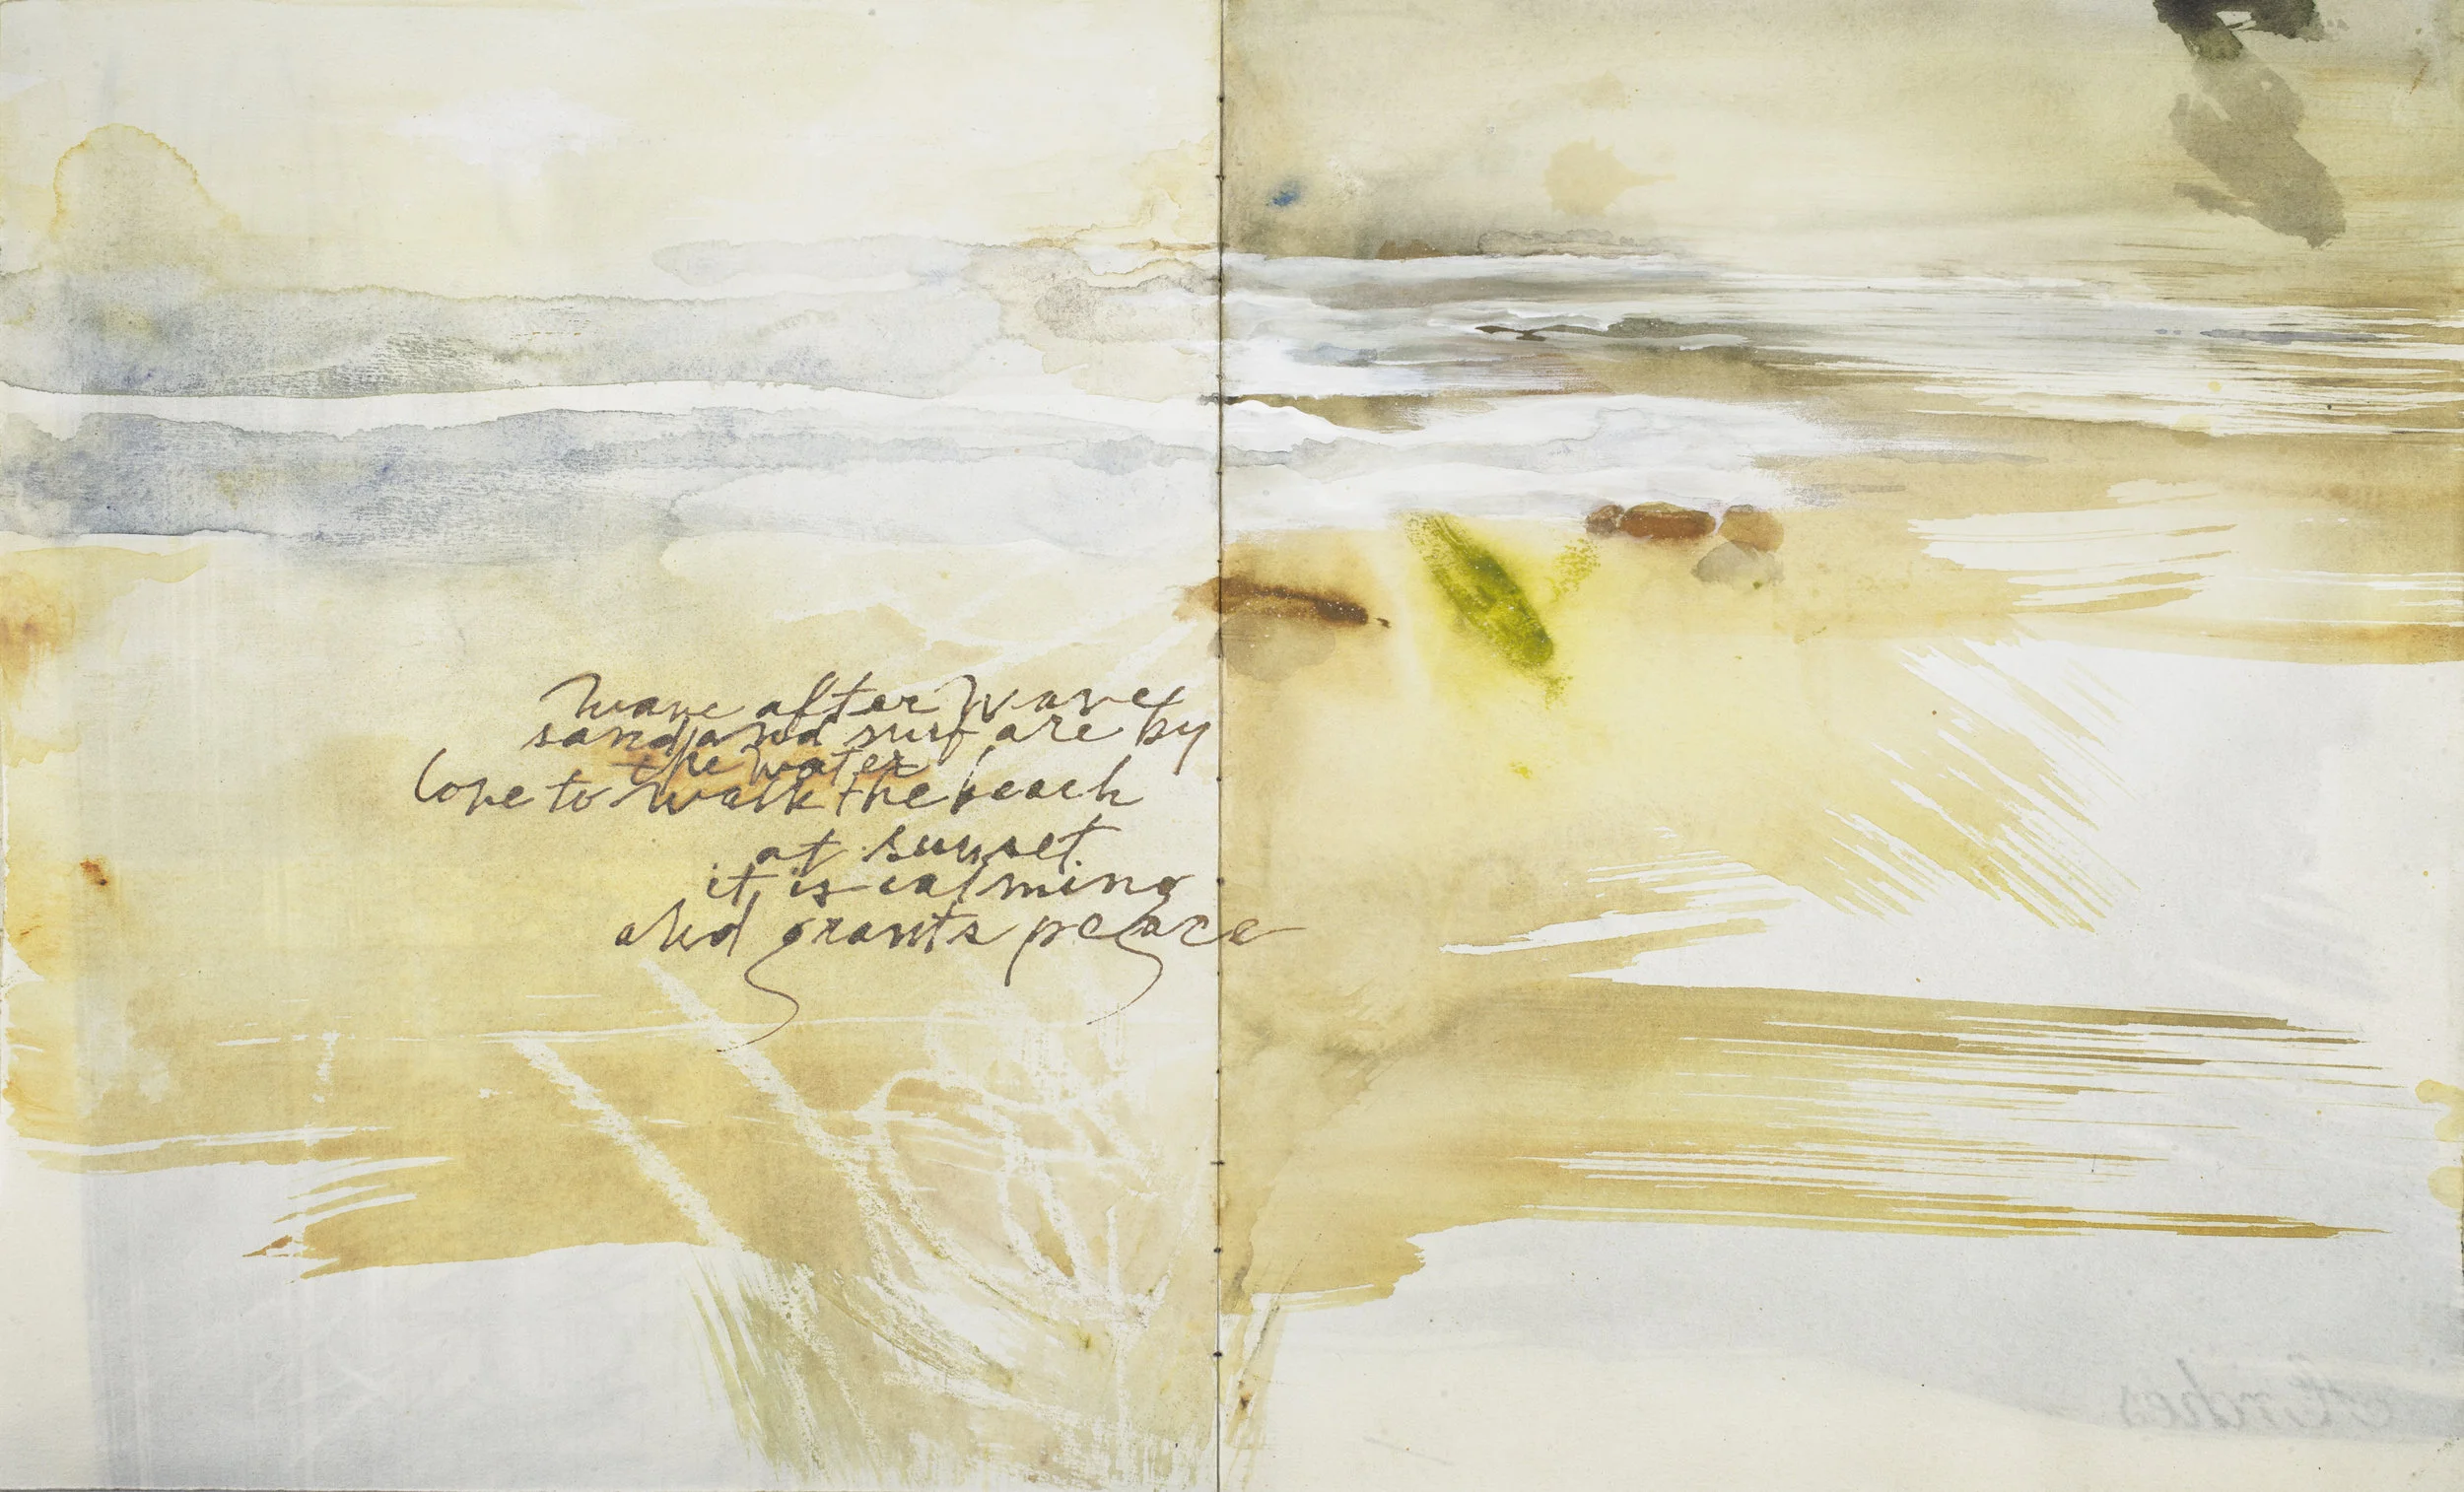 wave after wave
sand and surf are by
the water
love to walk the beach
at sunset
it is calming
and grants peace